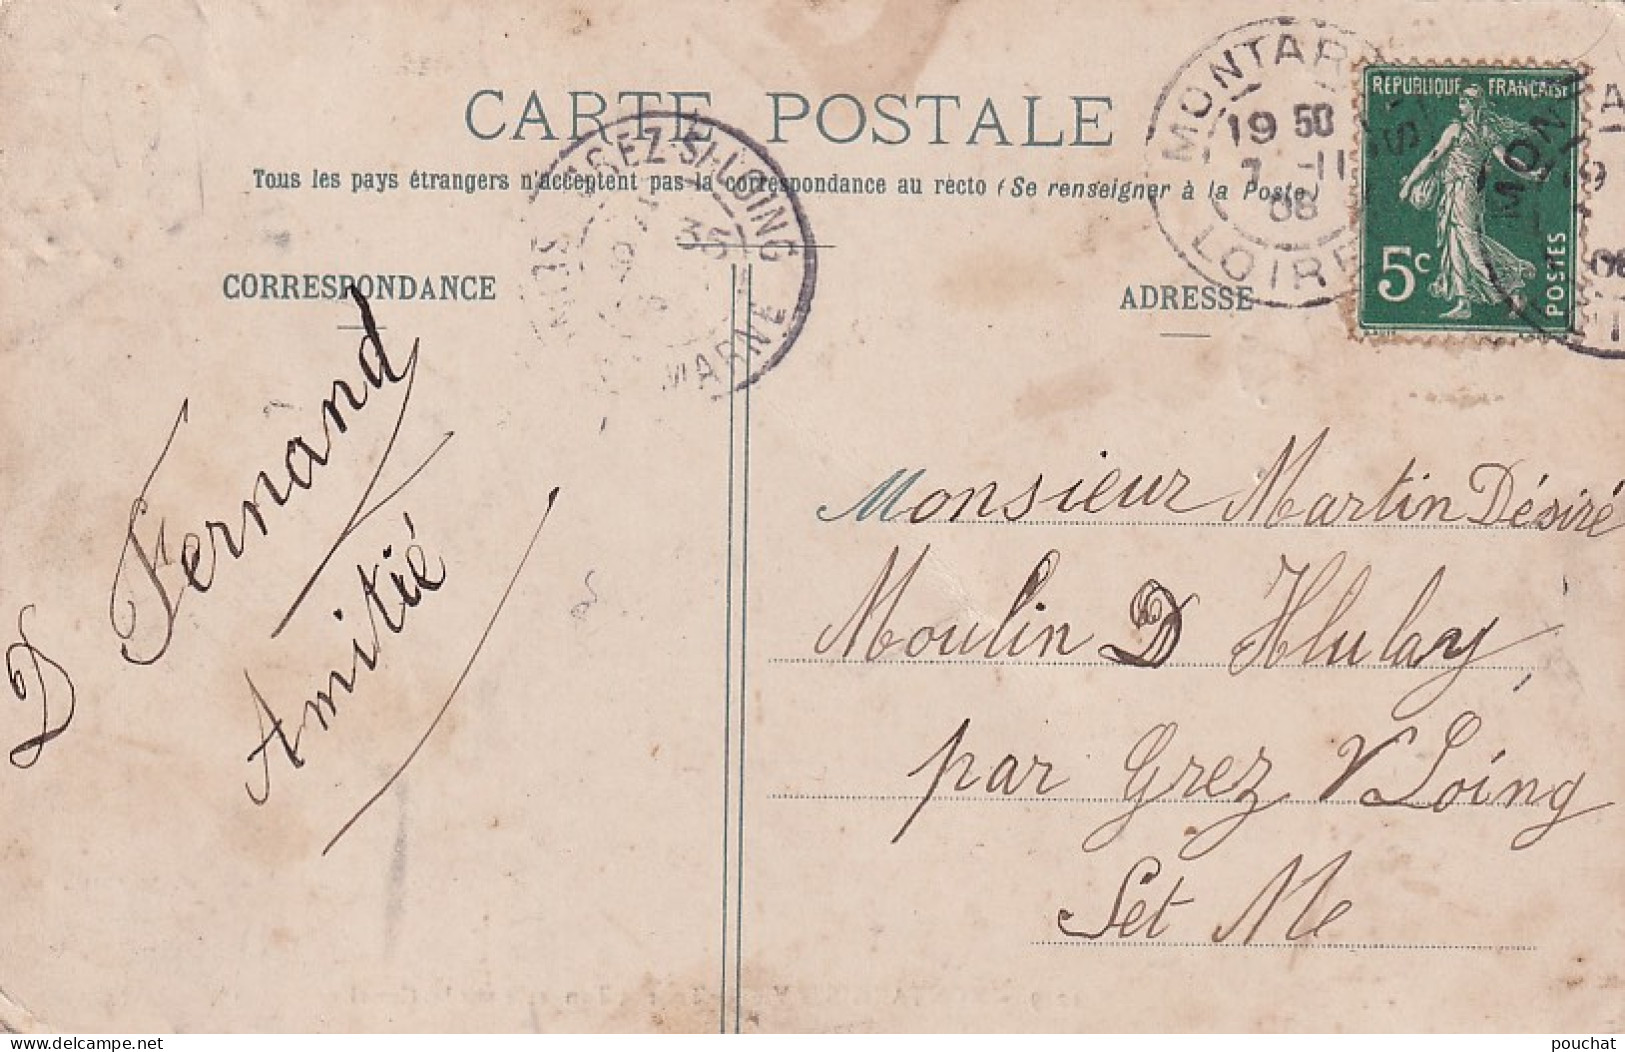 CARTE POSTALE
Tous les pays étrangers n'acceptent pas la correspondance au recto (Se renseigner à la Poste)
CORRESPONDANCE
ADRESSE
MONTAR
19 50
7 -11
08
LOIRE
REPUBLIQUE FRANÇAISE
5c
POSTES
GREZ-S-LOING
MARNE
D Fernand
Amitié
Monsieur Martin Désiré
Moulin D Hulay
par Grez s/ Loing
Set Me
delcampe.net
pouchat